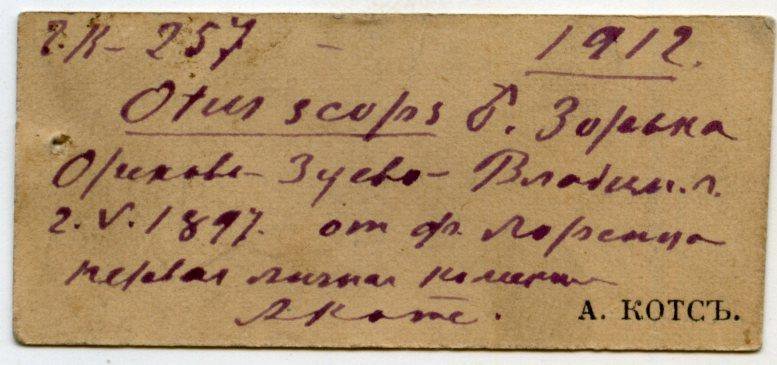 257 - 1912.
Otus scops ♂. Зорька
Орехово-Зуево- Владим. г.
2.V.1897. от Ф. Лоренца
первая личная коллекция
А. Котс.
А. КОТСЪ.